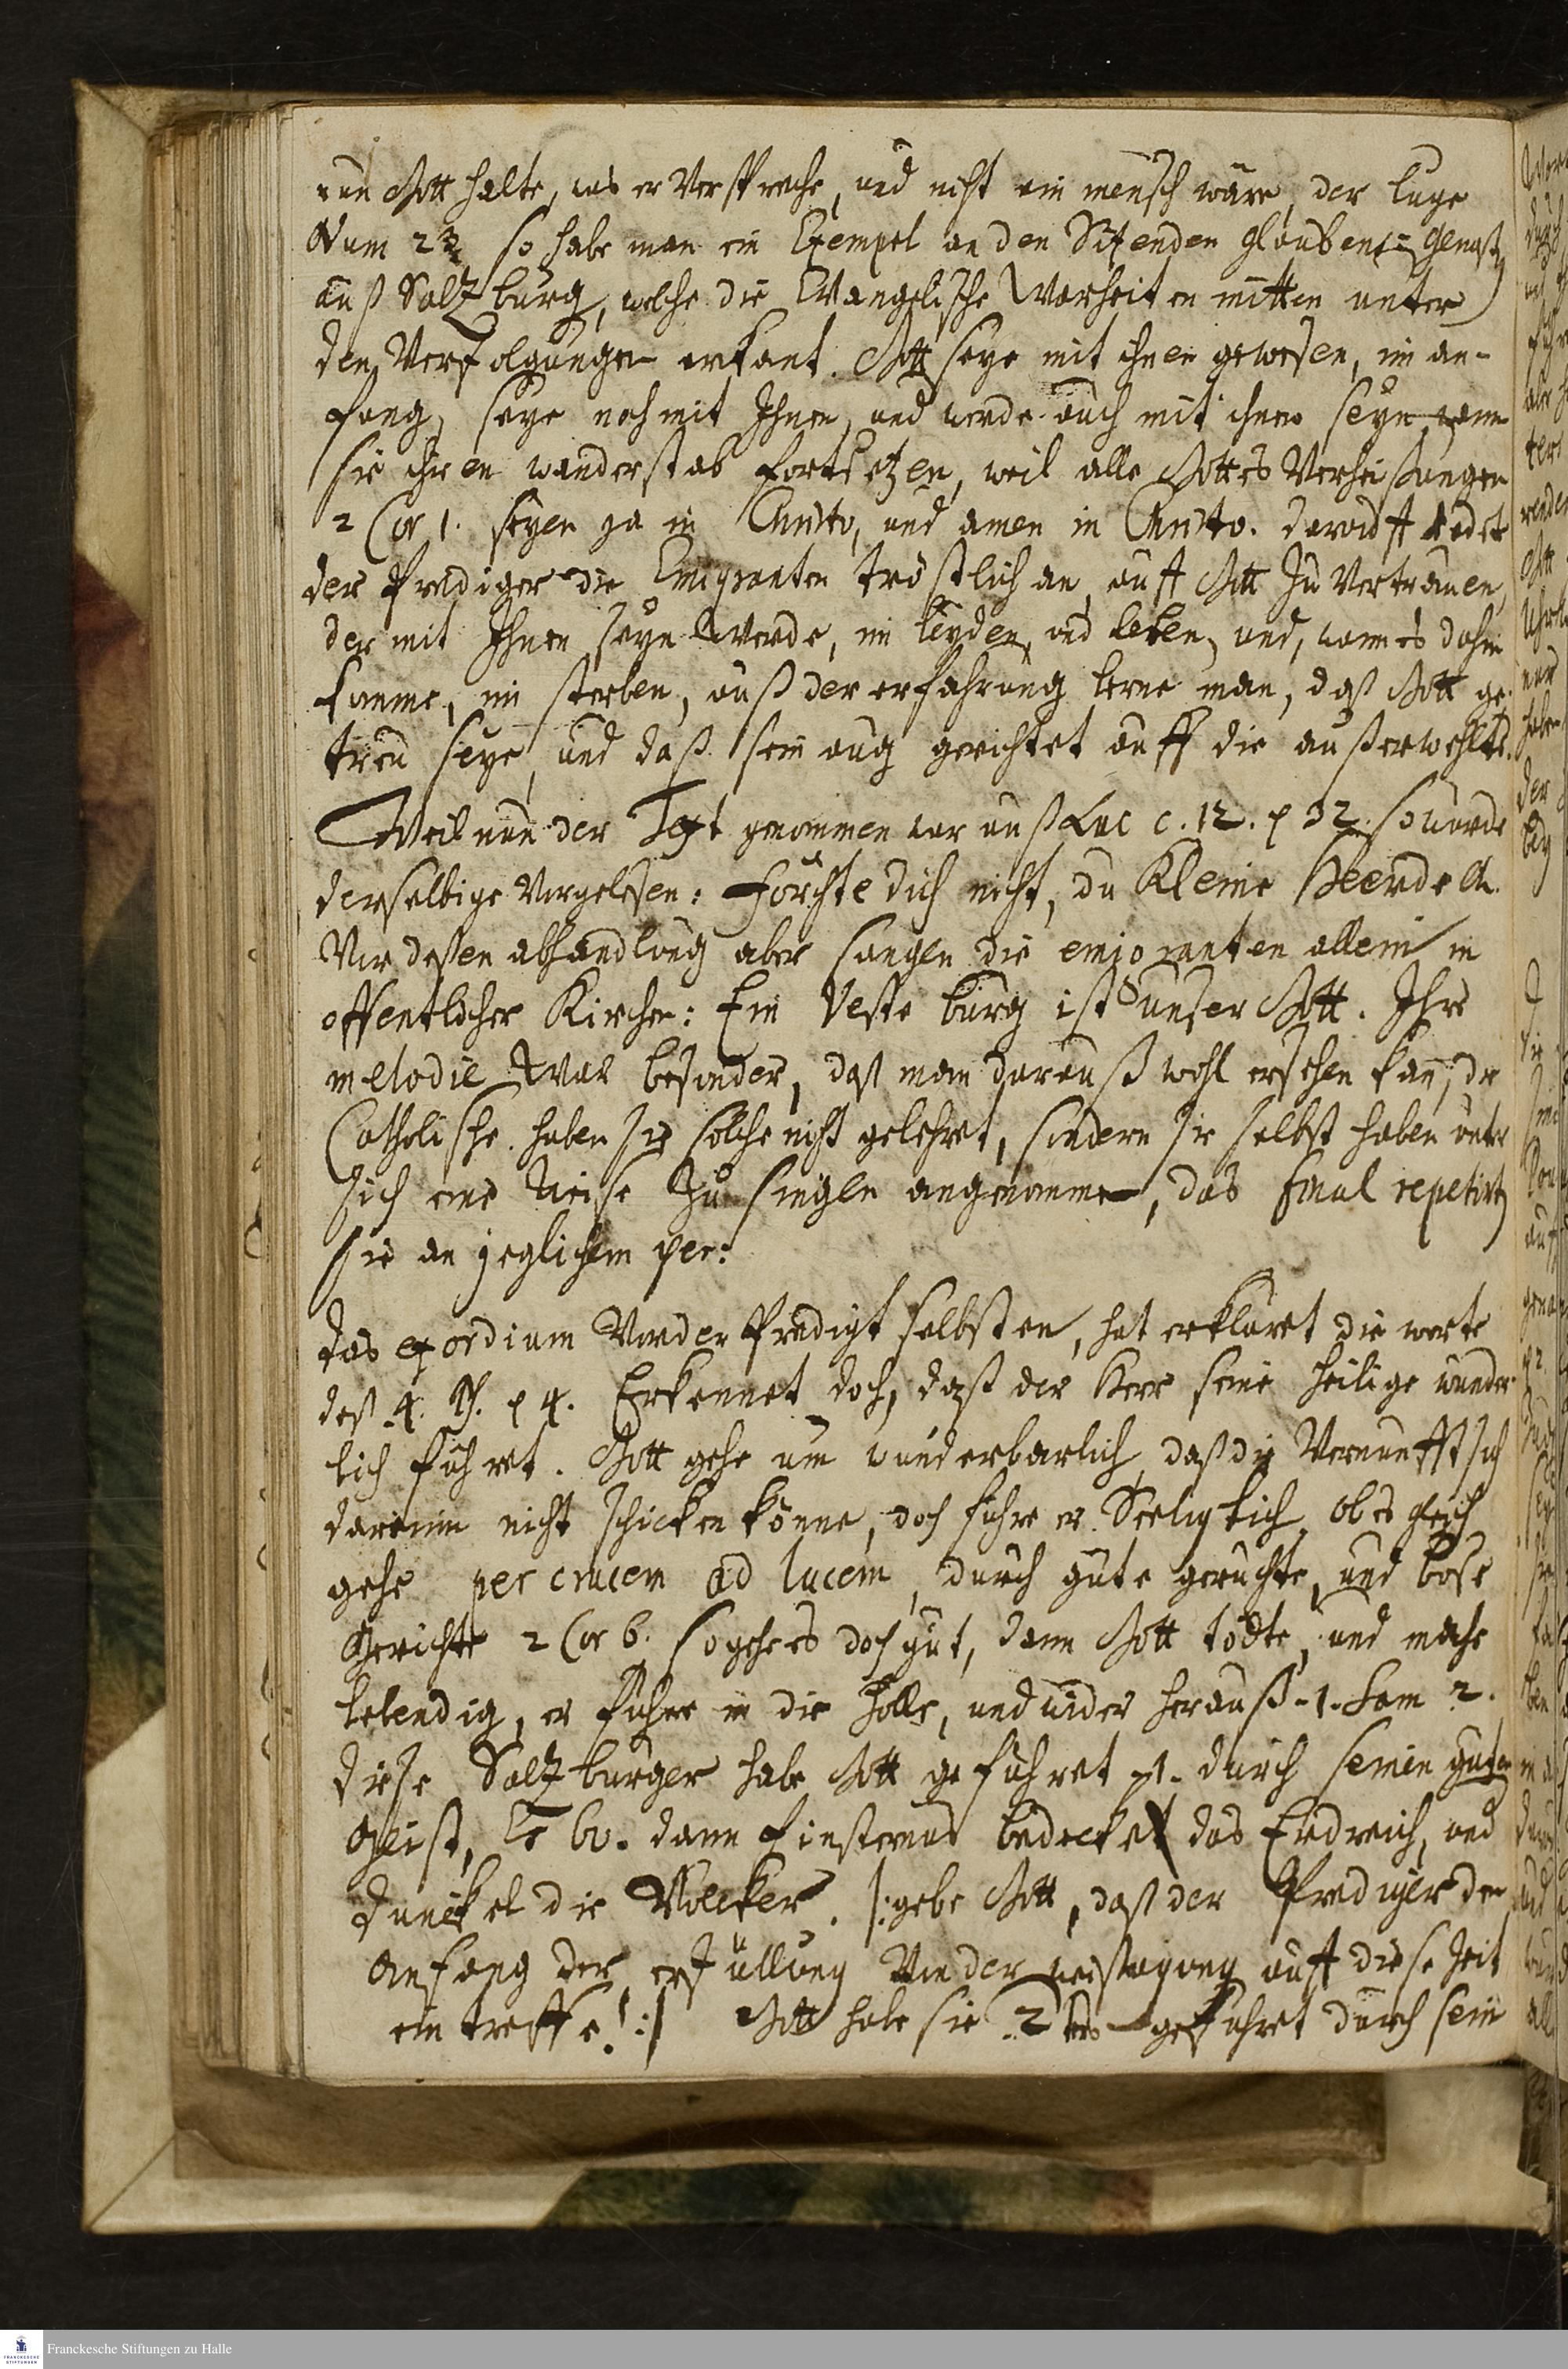 nun Gott halte, was er Verspreche, und nicht ein mensch wäre, der luge
Num 23 so habe man ein Exempel an den Sitzenden glaubens-Genoß
auß Saltzburg, welche die Evangelische Warheiten mitten unter
den Verfolgungen erkant. Gott seye mit ihnen gewesen, im an-
fang, seye noch mit Ihnen, und werde auch mit ihnen seyn wann
sie ihren wanderstab fortsetzen, weil alle Gottes Verheissungen
2 Cor 1. seyen ja in Christo, und amen in Christo. darauff redet
der Prediger die Emigranten tröstlich an, auff Gott zu Vertrauen,
der mit Ihnen seyn Werde, im leyden, und leben, und, wann es dahin
komme, im sterben, auß der erfahrung lerne man, daß Gott ge-
treu seye, und daß sein aug gerichtet auff die außerwehlte.
Weil nun der Text genommen war auß Luc c. 12. v 32. so wurde
derselbige Vorgelesen: Förchte dich nicht, du Kleine Heerde &.
Vor deßen abhandlung aber sangen die emigranten allein in
offentlicher Kirchen: Ein Veste burg ist unser Gott. Ihre
melodie War besonder, daß man darauß wohl ersehen kan, die
Catholische haben sie solche nicht gelehret, sondern sie selbst haben unter
sich eine Weise zu singen angenommen, das final repetirt
sie an jeglichem per:
das exordium Von der Predigt selbsten, hat erkläret die worte
deß 4. Ps. v 4. Erkennet doch, daß der Herr seine heilige wunder
lich führet. Gott gehe um wunderbarlich, daß die Vernunfft sich
darein nicht schicken könne, doch führe er Seeliglich, ob es gleich
gehe per crucem ad lucem, durch gute geruchte, und böse
Gerüchte 2 Cor 6. so gehe es doch gut, dann Gott tödte, und mache
lebendig, er führe in die hölle, und wider herauß. 1. Sam 2.
diese Saltzburger habe Gott geführet 1. durch seinen guten
Geist, Es 60. dann finsternus bedecket das Erdreich, und
dunckel die Völcker. |: gebe Gott, daß der Prediger den
Anfang der erfüllung Von der weissagung auff diese Zeit
ein treffe! :| Gott habe sie 2tens geführet durch sein
Franckesche Stiftungen zu Halle